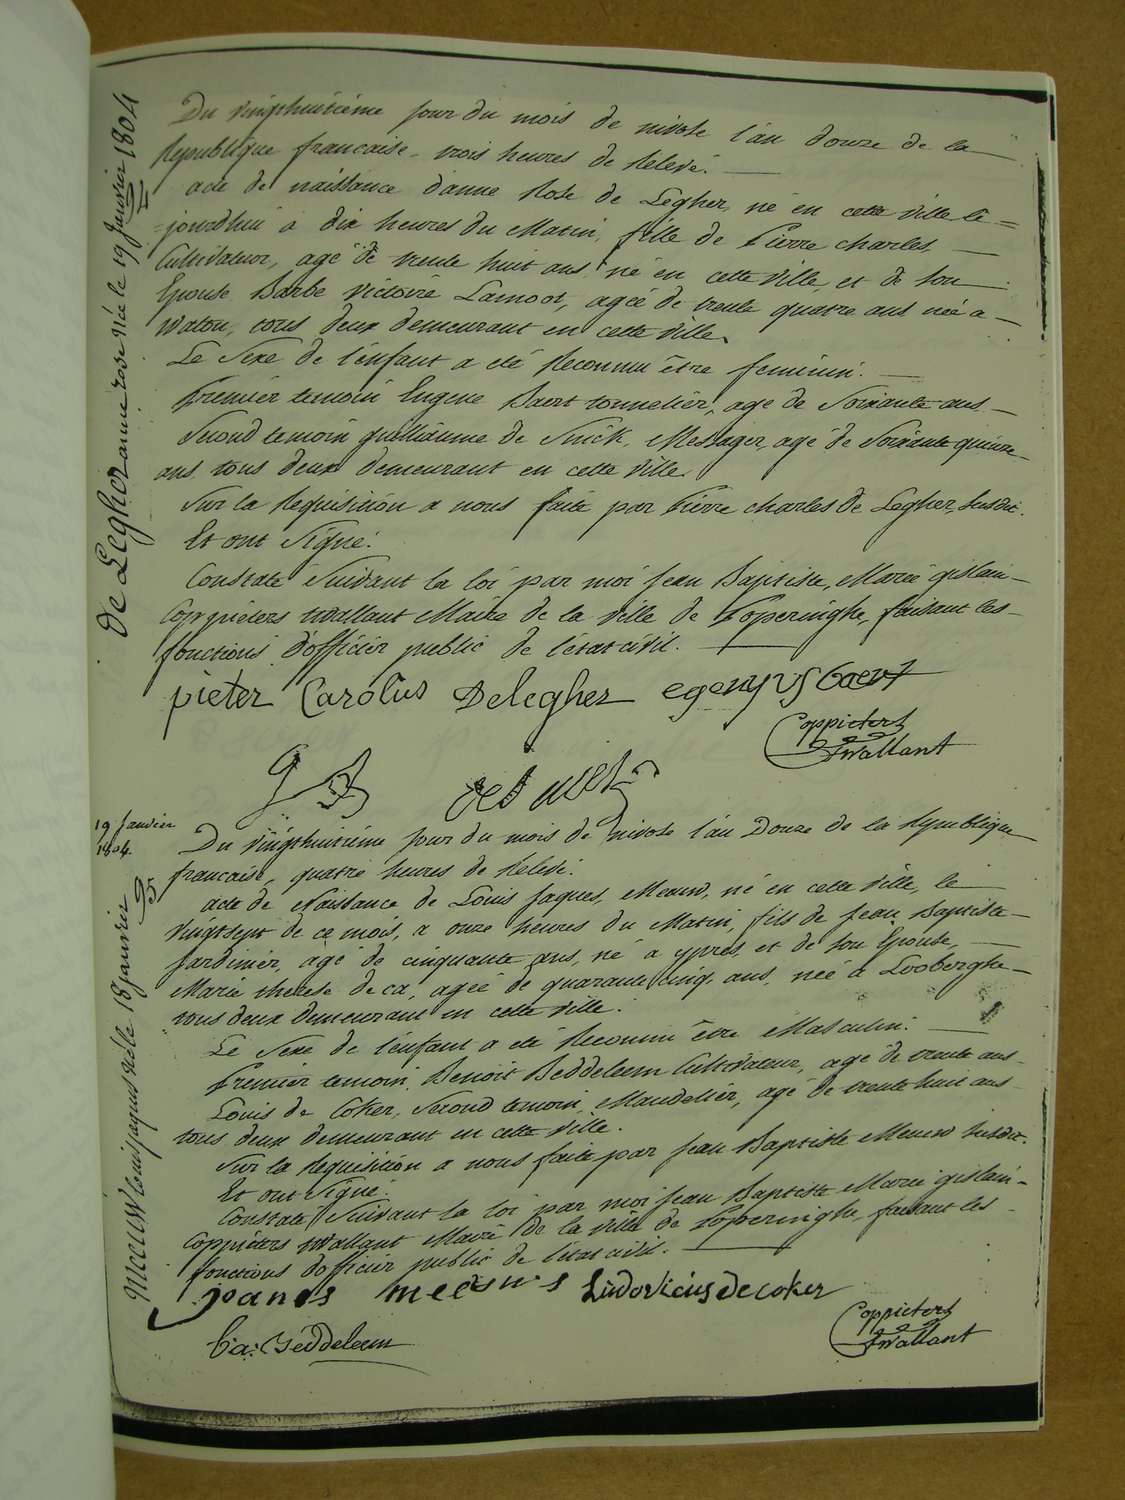 De Legher anne rose Née le 19 Janvier 1804
Du vingthuitième jour du mois de nivose l'an douze de la
Republique francaise, trois heures de Relevé.
acte de naissance d'anne Rose de Legher, né en cette ville le =
= jourdhui a dix heures du Matin, fille de Pierre charles,
Cultivateur, agé de trente huit ans né en cette ville, et de son
Epouse Barbe Victoire Lamoot, agée de trente quatre ans née a
Watou, tous deux demeurant en cette ville.
Le Sexe de l'enfant a été Reconnu être feminin.
Premier temoin Eugene Baert tonnelier, agé de Soixante ans
Second temoin guilliaume de Snick, Messager, agé de Soixante quinze
ans tous deux demeurant en cette ville.
Sur la Requisition a nous faite par Pierre charles de Legher, susdit.
Et ont Signé.
Constaté Suivant la loi par moi Jean Baptiste, Marie gislain
Coppieters Wallant Maire de la ville de Poperinghe, faisant les
fonctions d'officier public de l'etat civil.
pieter Carolus Delegher egenyus baert
Coppieters
Wallant
19 Janvier
1804.
meeuw louis jaques né le 18 janvier
Du vingthuitième jour du mois de nivose l'an Douze de la Republique
francaise, quatre heures de Relevé.
acte de Naissance de Louis Jaques, Meeuw, né en cette ville, le
vingtsept de ce mois, a onze heures du Matin, fils de Jean Baptiste
Jardinier, agé de cinquante ans, né a ypres, et de son Epouse,
Marie therese de ca, agée de quarante cinq ans, née a Looberghe
tous deux demeurant en cette ville.
Le Sexe de l'enfant a été Reconnu être Masculin.
Premier temoin, Benoit Beddeleem Cultivateur, agé de trente ans
Louis de Coker, Second temoin, Mandelier, agé de trente huit ans
tous deux demeurant en cette ville.
Sur la Requisition a nous faite par Jean Baptiste Meeuw susdit.
Et ont Signé.
Constaté Suivant la loi par moi Jean Baptiste Marie gislain
Coppieters Wallant Maire de la ville de Poperinghe, faisant les
fonctions d'officier public de l'etat civil.
joanes meeuws Ludovicus decoker
ba: Beddeleem
Coppieters
Wallant